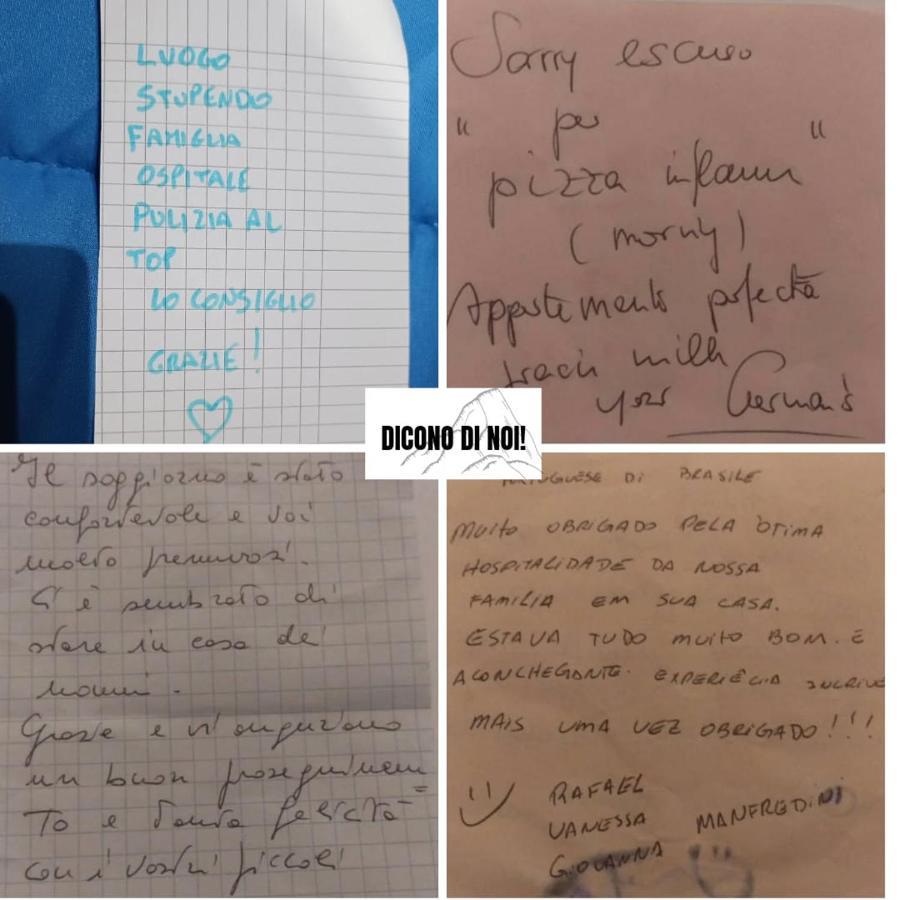 LUOGO
STUPENDO
FAMIGLIA
OSPITALE
PULIZIA AL
TOP
LO CONSIGLIO
GRAZIE!
Sorry escuso
" per "
pizza
(morniy)
Appartemento
milk
your German's
DICONO DI NOI!
Il soggiorno è stato
confortevole e voi
molto premurosi.
Ci è sembrato di
stare in casa dei
nonni.
Grazie e vi auguriamo
un buon proseguimen=
to e tanta felicità
con i vostri piccoli
DI BRASILE
MUITO OBRIGADO PELA ÓTIMA
HOSPITALIDADE DA NOSSA
FAMILIA EM SUA CASA.
ESTAVA TUDO MUITO BOM. E
ACONCHEGANTE. EXPERIÊCIA
MAIS UMA VEZ OBRIGADO!!!
RAFAEL
VANESSA MANFREDINI
GIOVANNA